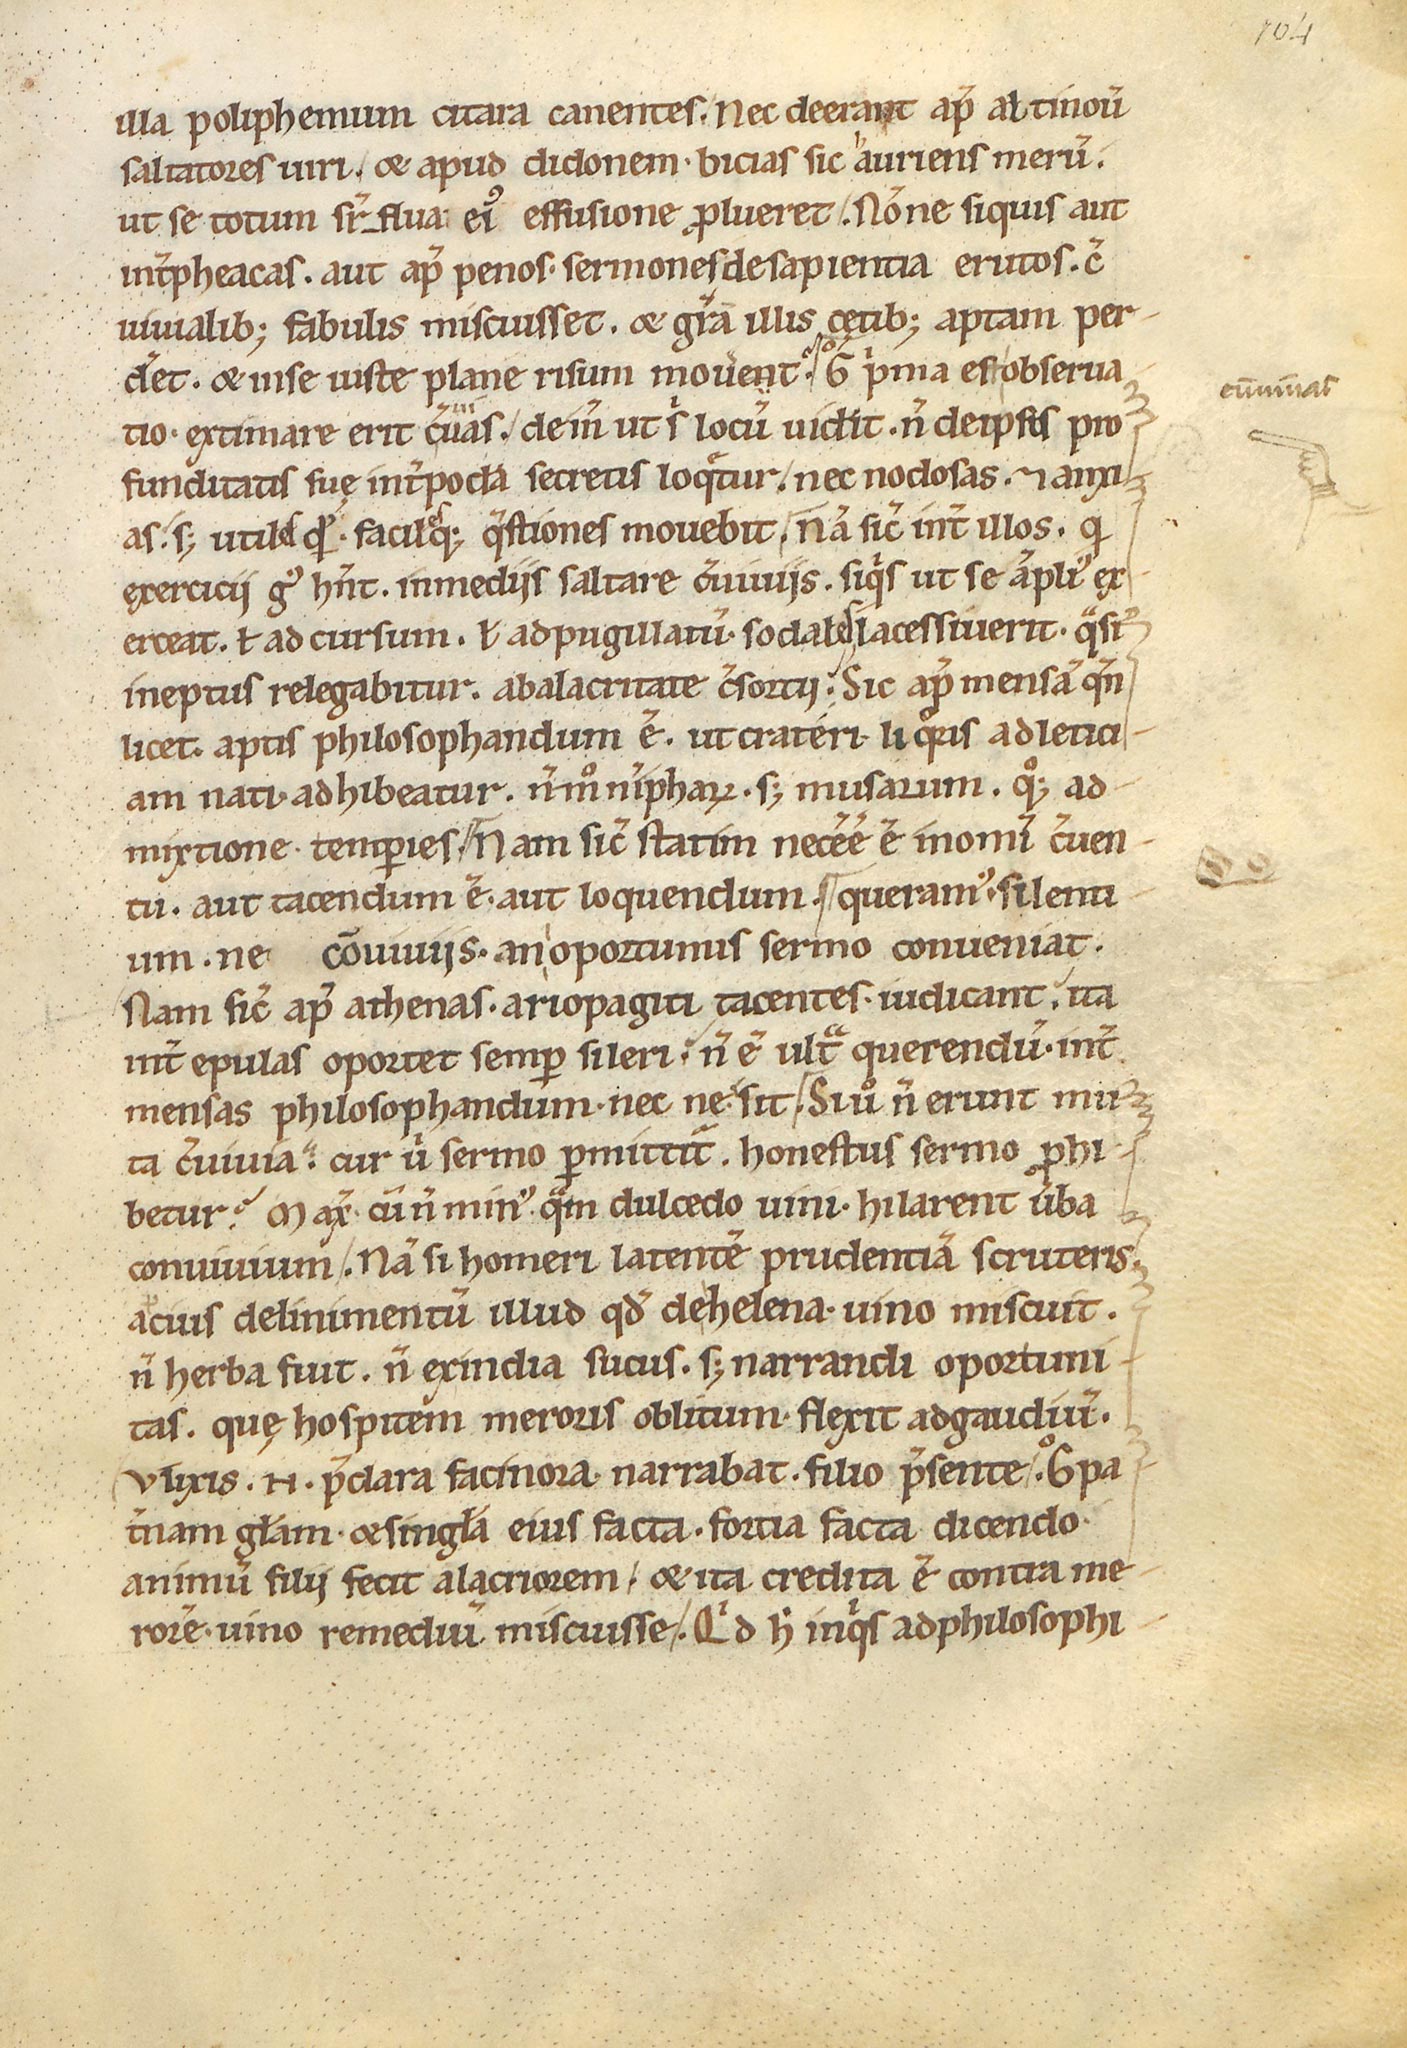 704
illa poliphemum citara canentes. Nec deerant ap̄ altinoū
saltatores uiri. & apud didonem. bicias sic hauriens merū.
ut se totum sr̄flua ei᷒ effusione ꝓlueret. Nōne siquis aut
int̄ pheacas. aut ap̄ penos. sermones de sapientia erutos. c̄
uiuialib; fabulis miscuisset. & gr̄am illis cetib; aptam per
d̄et. & in se iuste plane risum mouent. G° pͥma est obserua
tio. extimare erit c̄uiuas. dein̄ ut sͥ locū uid̄it. n̄ de ipsis pro
funditatis suę int̄ pocl̄a secretis loqͣtur. nec nodosas. ⁊ anxi
as. s; utiles qͥd̄. faciles q; q̄stiones mouebit. Nā sic̄ int̄ illos. qͥ
exercicii gͦ hn̄t. in mediis saltare c̄uiuiis. siqͥs ut se āpli᷒ ex
erceat. ł ad cursum. ł ad pugillatū. sodales lacessiuerit. qͣsi
ineptus relegabitur. ab alacritate c̄sortii. Sic ap̄ mensā qn̄
licet. aptis philosophandum ē. ut crateri liqͦris ad letici
am nati. adhibeatur. n̄ mͦ nīphaꝝ. s; musarum. qͦ; ad
mixtione. temꝑies. Nam sic̄ statim necēē ē in omī c̄uen
tu. aut tacendum ē. aut loquendum. queram᷒. silenti
um. ne cōuiuiis. an oportunus sermo conueniat.
Nam sic̄ ap̄ athenas. ariopagiti tacentes. iudicant. ita
int̄ epulas oportet semꝑ sileri. n̄ ē ultͣ querendū. int̄
mensas philosophandum. nec ne sit. Si ūͦ n̄ erunt mu
ta c̄uiuia. cur ū sermo ꝑmittit̄. honestus sermo ꝓhi
betur. Max̄. cū n̄ min᷒ qͣm dulcedo uini. hilarent ūba
conuiuium. Nā si homeri latentē prudentiā scruteris.
alcius delinimentū illud qd̄ de helena. uino miscuit.
n̄ herba fuit. n̄ ex india sucus. s; narrandi oportuni
tas. quę hospitem meroris oblitum. flexit ad gaudiū.
Vlixis. N. p̄clara facinora. narrabat. filio p̄sente. G° pa
t̄nam gl̄am. & singl̄a eius facta. fortia facta dicendo.
animū filii fecit alacriorem. & ita credita ē contra me
rorē. uino remediū miscuisse. Qͥd hͥ inqͥs ad philosophi